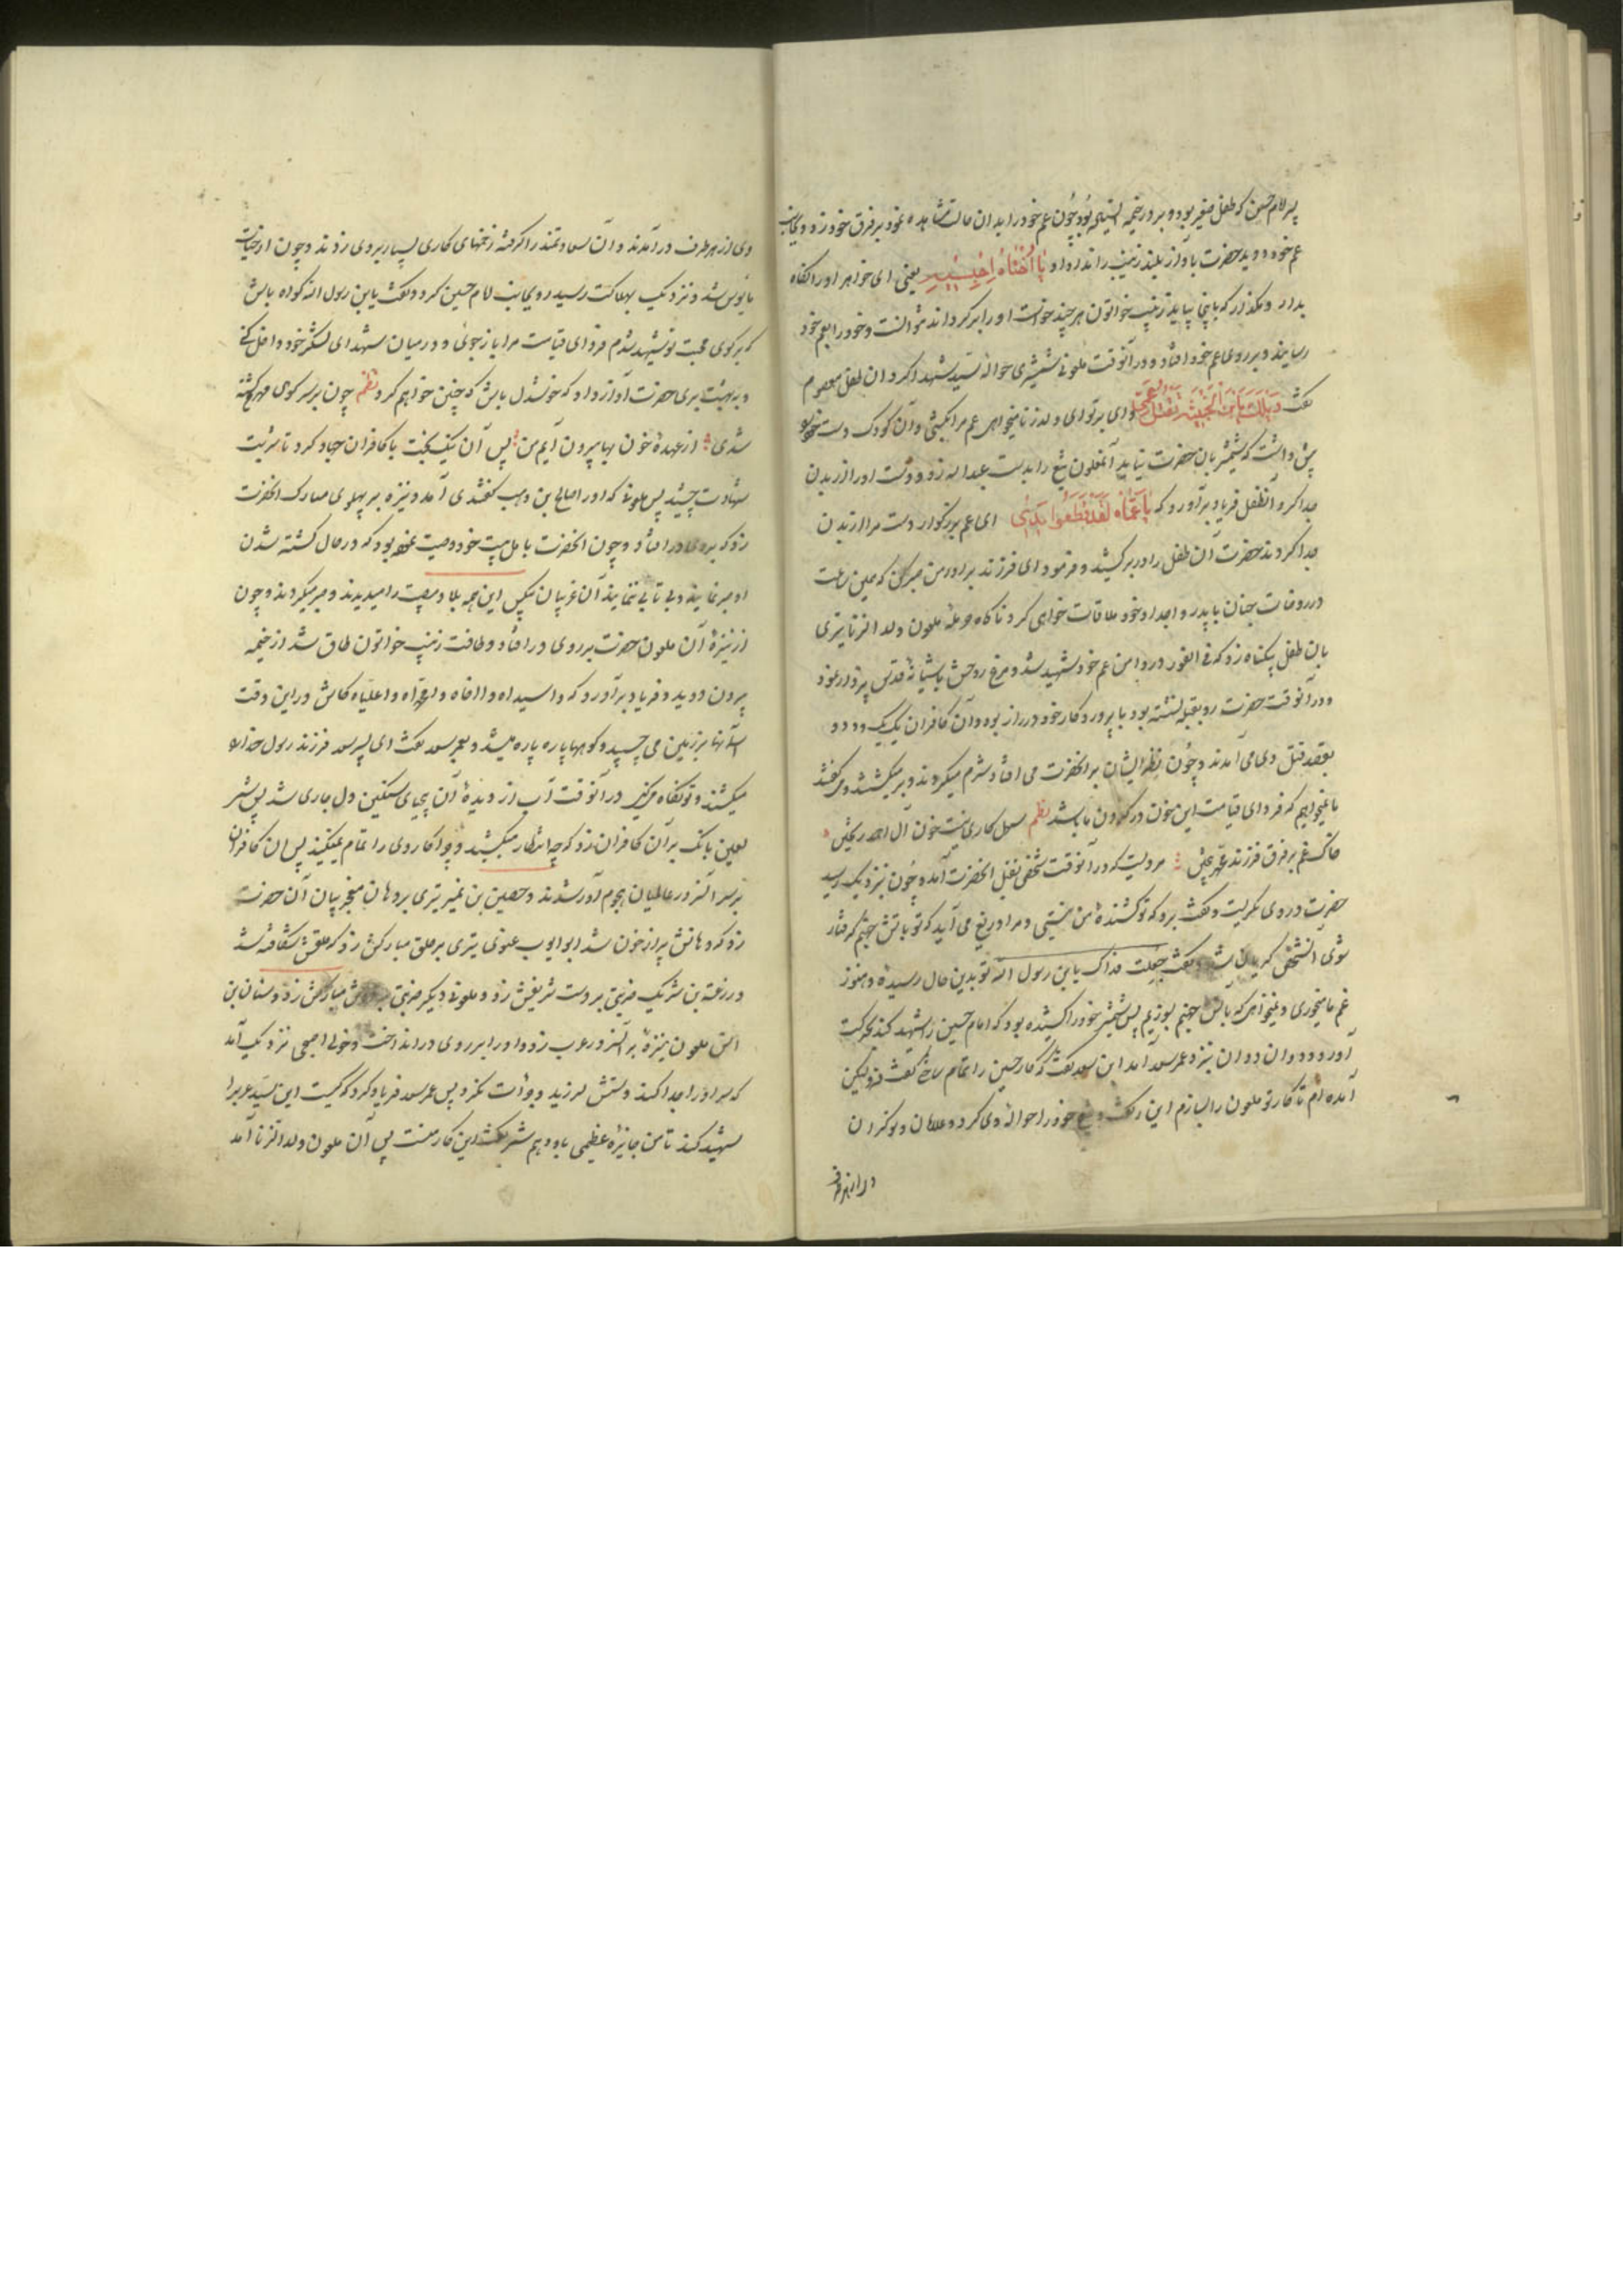 پسر امام حسن که طفل صغیر بود و بر در خیمه ایستاده بود چون عم خود را بدان حالت مشاهده نمود بر فرق خود زد و بجانب
عم خود دوید حضرت بآواز بلند زینب را ندا داد و یا اُختاهُ اِحْبِسیهِ یعنی ای خواهر او را نگاه
بدار و مگذار که باینجا بیاید زینب خواتون هر چند خواست او را بر گرداند نتوانست و خود را بعم خود
رسانید و بر روی عم خود افتاد و در آنوقت ملعونی شمشیری حواله سید شهدا کرد آن طفل معصوم
گفت وَیْلَکَ یَابْنَ الْخَبیثَةِ تَقْتُلُ عَمّی وای بر تو ای ولد زنا میخواهی عم مرا بکشی و آن کودک دست خود
پیش داشت که شمشیر بان حضرت نیاید آنملعون تیغ را بدست عبداله زد و دست او را از بدن
جدا کرد آنطفل فریاد برآورد که یا عَمّاهُ لَقَدْ قَطَعُوا یَدی ای عم بزرگوار دست مرا از بدن
جدا کردند حضرت آن طفل را در بر کشید و فرمود ای فرزند برادر من صبر کن که همین ساعت
در روضات جنان با پدر و اجداد خود ملاقات خواهی کرد ناگاه حرمله ملعون ولد الزنا تیری
بان طفل بیگناه زد که فی الفور در دامن عم خود شهید شد و مرغ روحش باشیانهٔ قدس پرواز نمود
و در آنوقت حضرت رو بقبله نشسته بود با پروردگار خود در راز بود و آن کافران یک یک و دو دو
بقصد قتل وی می آمدند و چون نظر ایشان بر آنحضرت می افتاد شرم میکردند و بر میگشتند و میگفتند
ما نمیخواهیم که فردای قیامت این خون در گردن ما باشد نظم سهل کاری نیست خون آل احمد ریختن
خاک غم بر فرق فرزند بیختن مرویست که در آنوقت شخصی بقتل آنحضرت آمد و چون نزدیک رسید
حضرت در وی نگریست و گفت برو که تو کشندهٔ من نیستی و مرا دریغ می آید که تو باتش جهنم گرفتار
شوی آنشخص گریان شد و گفت جعلت فداک یابن رسول الله تو بدین حال رسیده و هنوز
غم ما میخوری و نمیخواهی که باتش جهنم بسوزیم پس شمشیر خود را کشیده بود که امام حسین را شهید کند بحرکت
آورد و دوان دوان نزد عمر سعد آمد ابن سعد گفت که کار حسین را تمام ساختی گفت نه ولیکن
آمده ام تا کار تو ملعون را بسازم این بگفت و تیغ خود را حواله وی کرد و غلامان و نوکران
وی از هر طرف در آمدند و آن سعادتمند را گرفته زخمهای کاری بسیار بر وی زدند و چون از حیات
مایوس شد و نزدیک بهلاکت رسید روی بجانب امام حسین کرد و گفت یابن رسول الله گواه باش
که بر کوی محبت تو شهید شدم فردای قیامت مرا باز جوئی و در میان شهدای لشکر خود داخل کنی
حضرت آواز داد که خوشدل باش که چنین خواهم کرد نظم چون بر سر کوی مهر کشته
شدی از عهدهٔ خون بها بیرون آیم من پس آن نیکبخت با کافران جهاد کرد تا شربت
شهادت چشید پس ملعونی که او را صالح بن وهب گفتندی آمد و نیزه بر پهلوی مبارک آنحضرت
زد که بر روی در افتاد و چون آنحضرت باهل بیت خود وصیت نموده بود که در حال کشته شدن
او صبر نمایند و بی تابی ننمایند آن غریبان بیکس این همه بلا و مصیبت را میدیدند و صبر میکردند و چون
از نیزهٔ آن ملعون حضرت بر روی در افتاد و طاقت زینب خواتون طاق شد از خیمه
بیرون دوید و فریاد برآورد که واسیداه و کاش در این وقت
آسمانها بر زمین می چسپید و کوهها پاره پاره میشد و بعمر سعد گفت ای پسر سعد فرزند رسول خدا را
میکشند و تو نگاه میکنی در آنوقت آب از دیدهٔ آن بیحیای سنگین دل جاری شد پس شمر
لعین بانگ بر آن کافران زد که چه انتظار میکشید و چرا کار وی را تمام نمیکنید پس آن کافران
بر سر آنسرور عالمیان هجوم آور شدند و حصین بن نمیر تیری بر دهان معجز بیان آن حضرت
زد که دهانش پر از خون شد ابو ایوب غنوی تیری بر حلق مبارکش زد که حلقش شکافته شد
و زرعة بن شریک ضربتی بر دست شریفش زد و ملعونی دیگر ضربتی بر دوش مبارکش زد و سنان بن
انس ملعون نیزهٔ بر آنسرور عرب زد و او را بر روی در انداخت و خولی اصبحی نزدیک آمد
که سر او را جدا کند دستش لرزید و جرأت نکرد پس عمر سعد فریاد کرد که کیست این سید عرب را
شهید کند تا من جایزه عظیمی باو دهم شمر گفت این کار منست پس آن ملعون ولد الزنا آمد